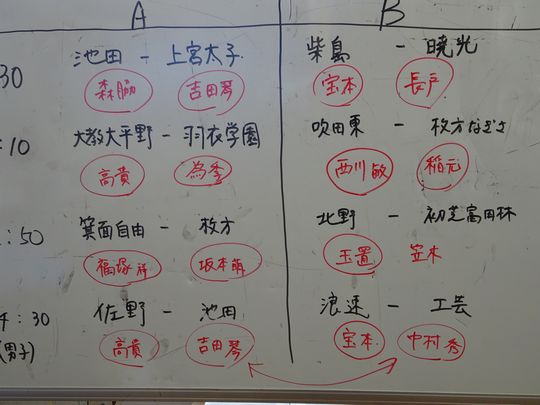 A B
30 池田 - 上宮太子 柴島 - 暁光
森脇 吉田琴 宝本 長戸
:10 大教大平野 - 羽衣学園 吹田東 - 枚方なぎさ
高貴 為季 西川敏 稲元
:50 箕面自由 - 枚方 北野 - 初芝富田林
福塚祥 坂本萌 玉置 笠木
4:30 佐野 - 池田 浪速 - 工芸
(男子) 高貴 吉田琴 宝本 中村秀